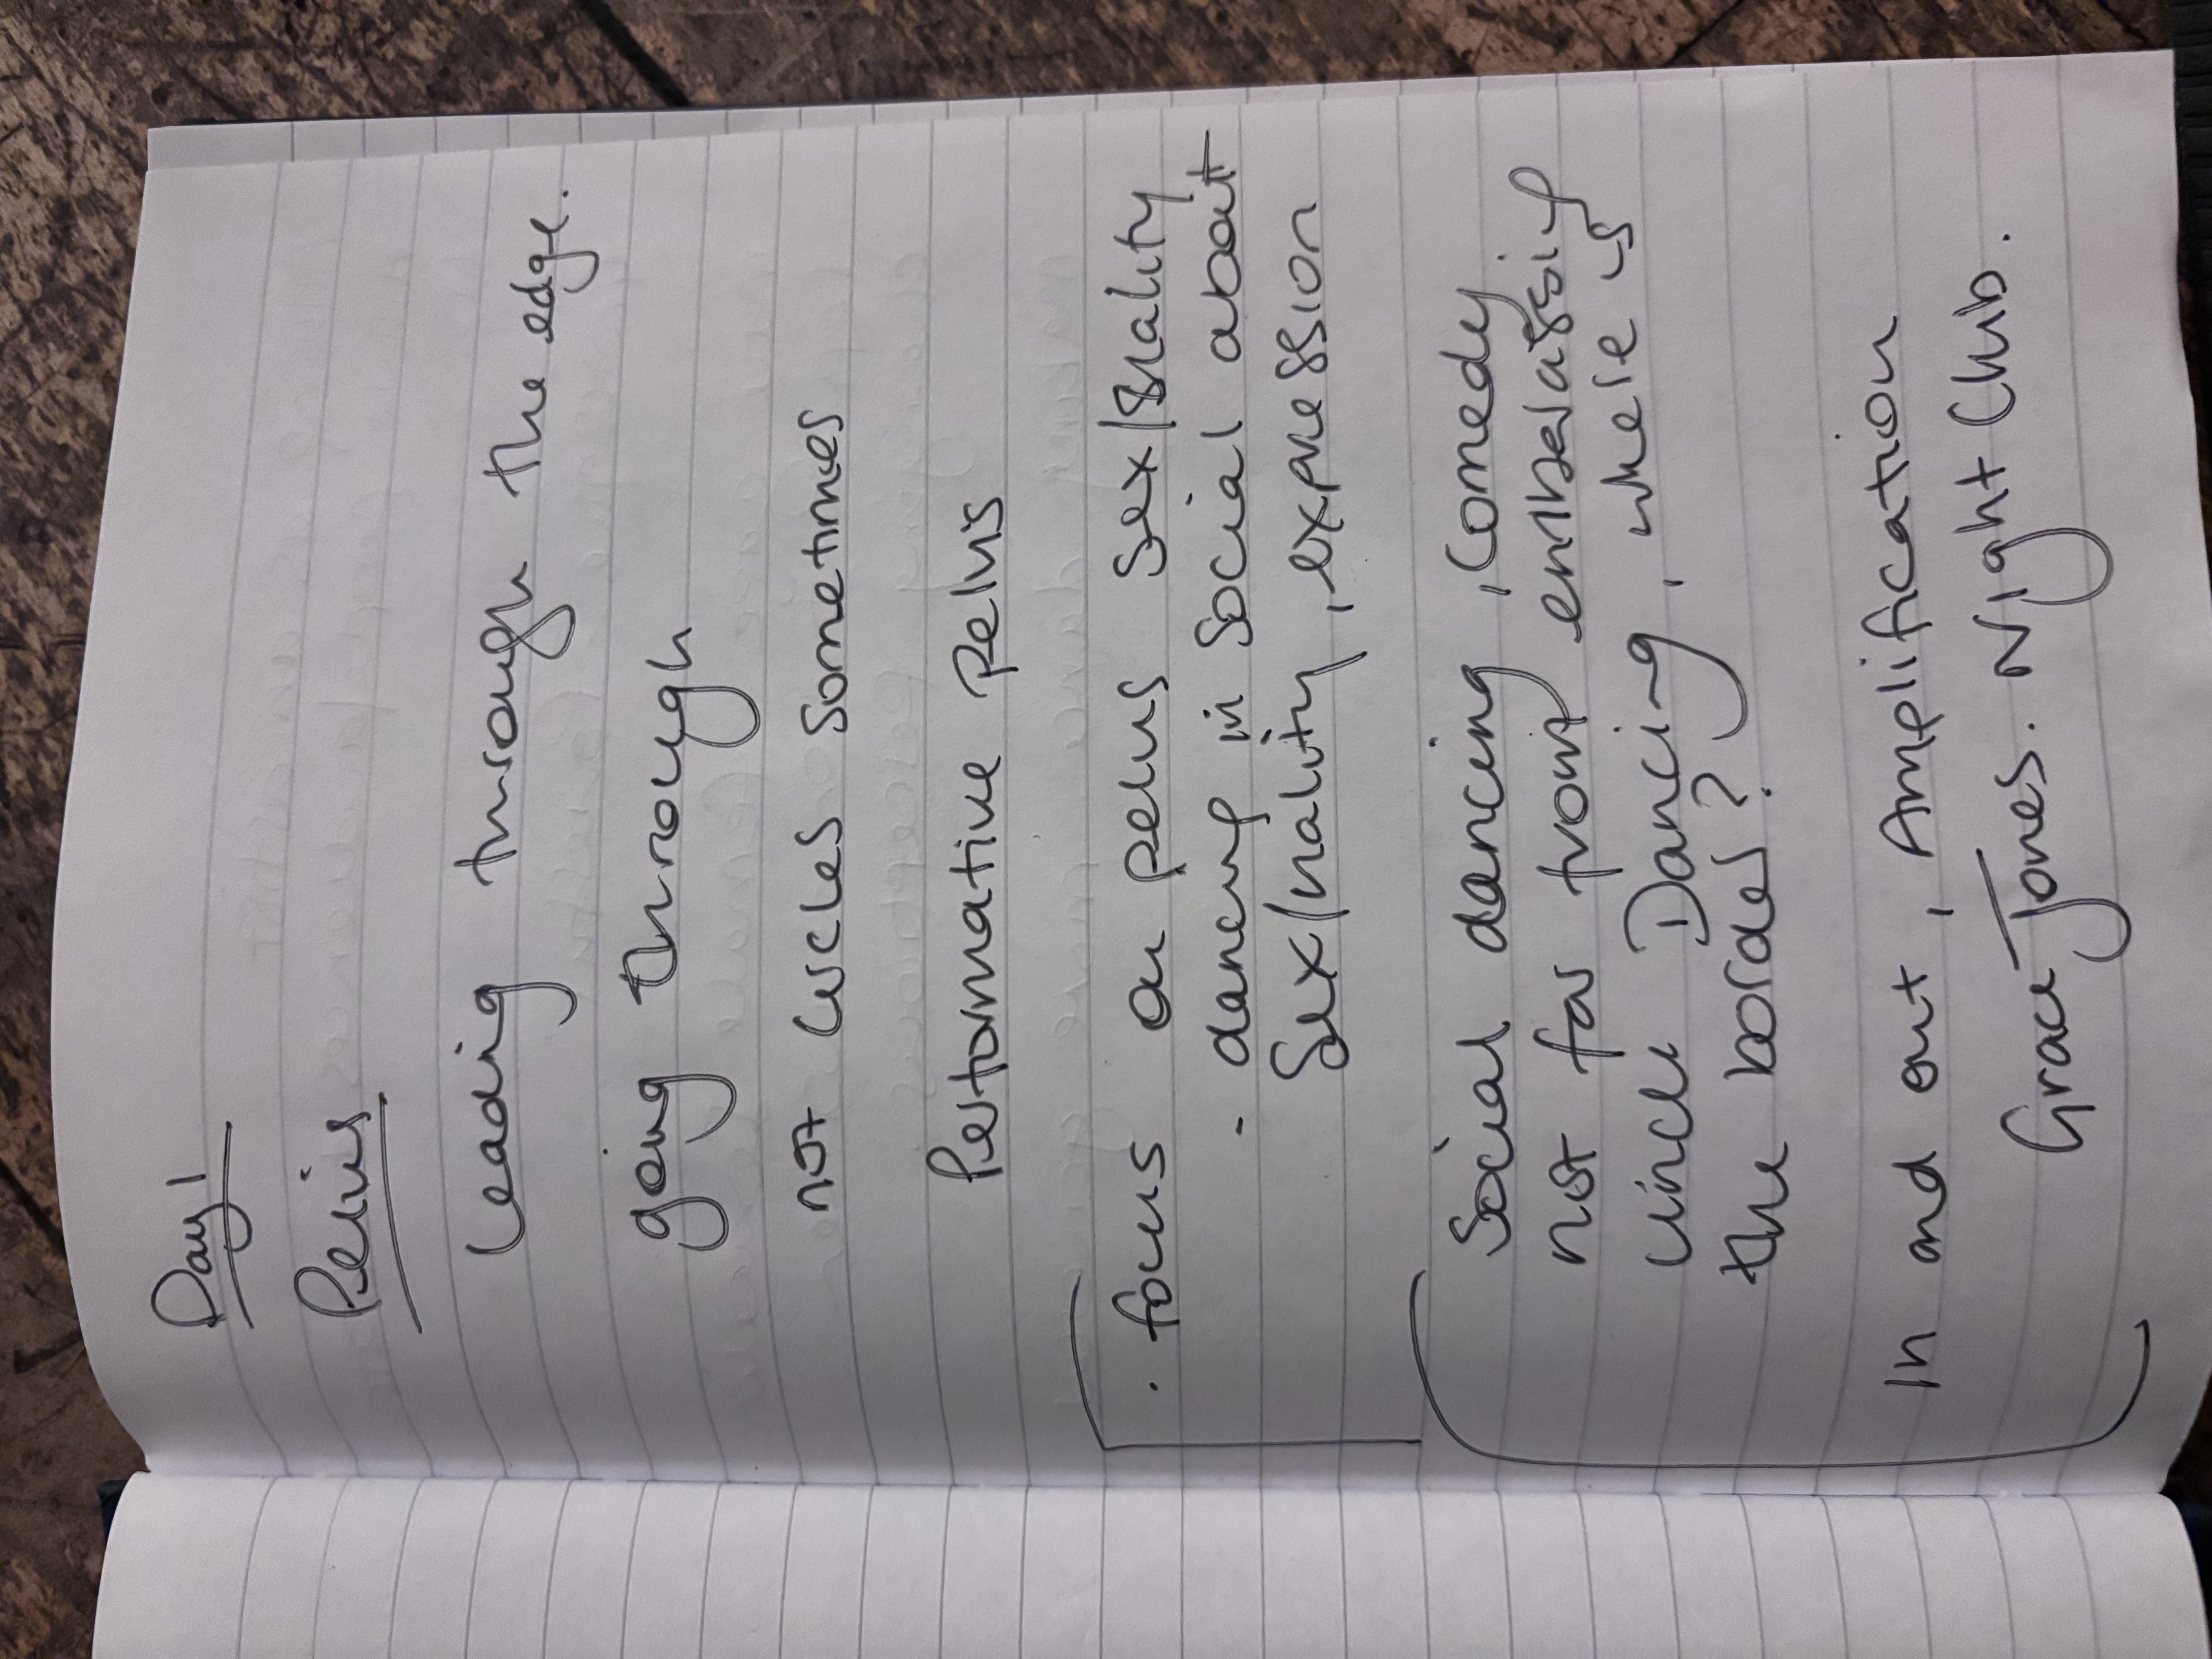 Day 1
Pelvis
Leading through the edge.
going through
not circles sometimes
Performative pelvis
. focus on pelvis sex/uality
- dancing in social about
Sex/nality, expression
Social dancing, comedy
not far from embarassing
uncle Dancing, where is
the border?
In and out, Amplification
Grace Jones. Night Club.